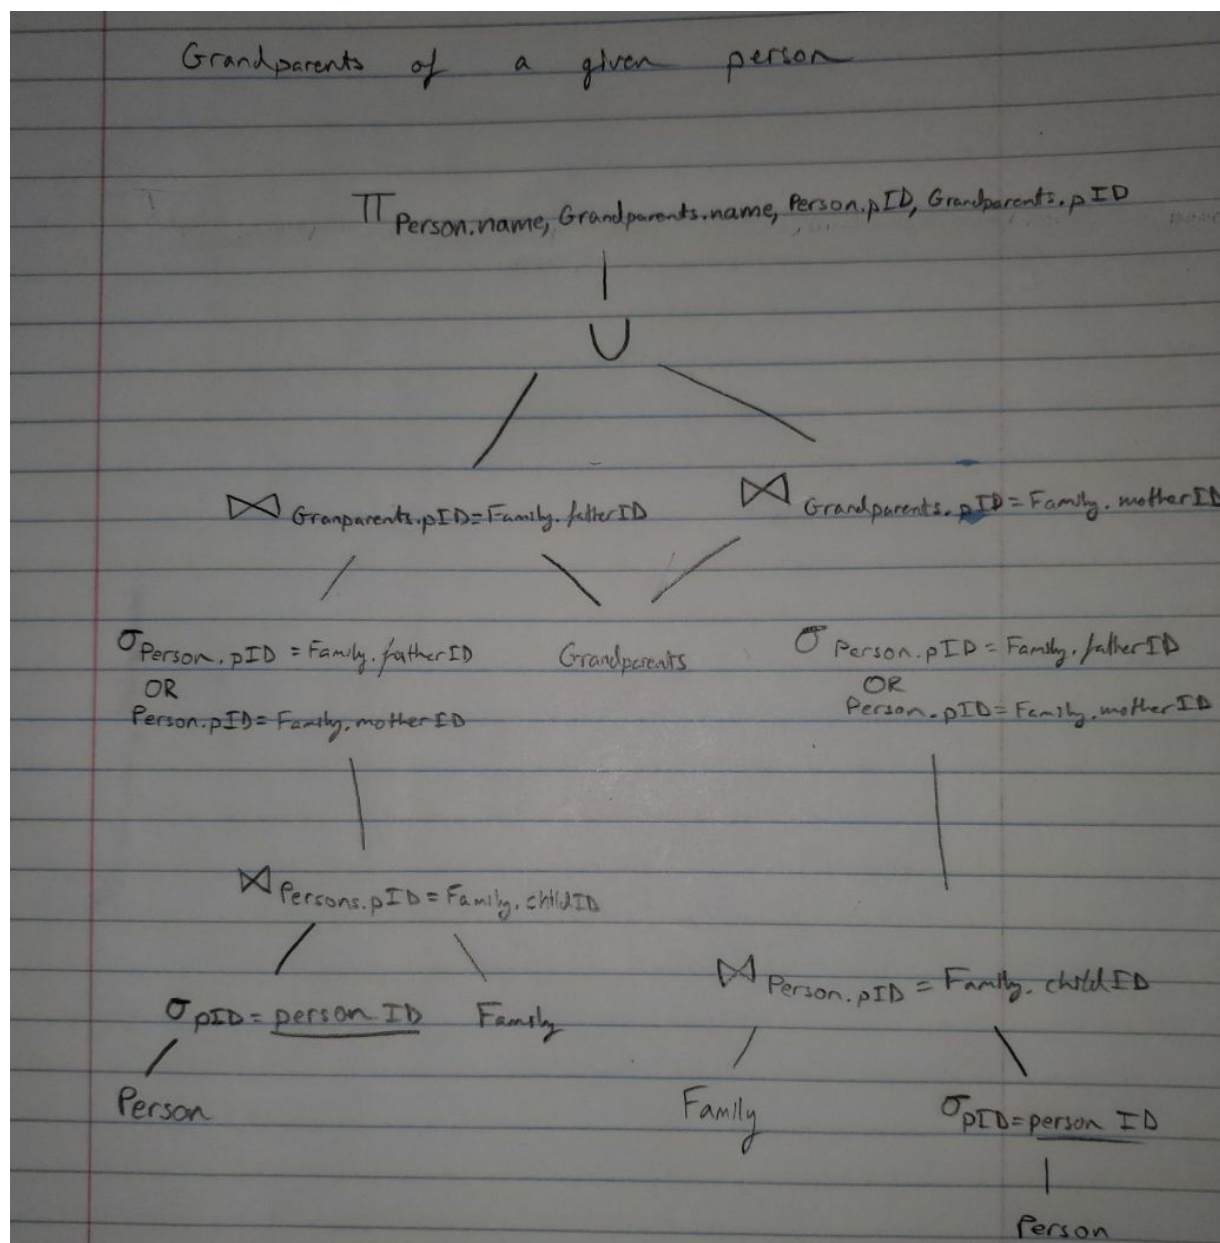 Grandparents of a given person
π Person.name, Grandparents.name, Person.pID, Grandparents.pID
∪
⋈ Granparents.pID=Family.fatherID
⋈ Grandparents.pID=Family.motherID
σ Person.pID = Family.fatherID
OR
Person.pID=Family.motherID
Grandparents
σ Person.pID=Family.fatherID
OR
Person.pID=Family.motherID
⋈ Persons.pID=Family.childID
⋈ Person.pID = Family.childID
σ pID=person ID
Family
Person
Family
σ pID=person ID
Person